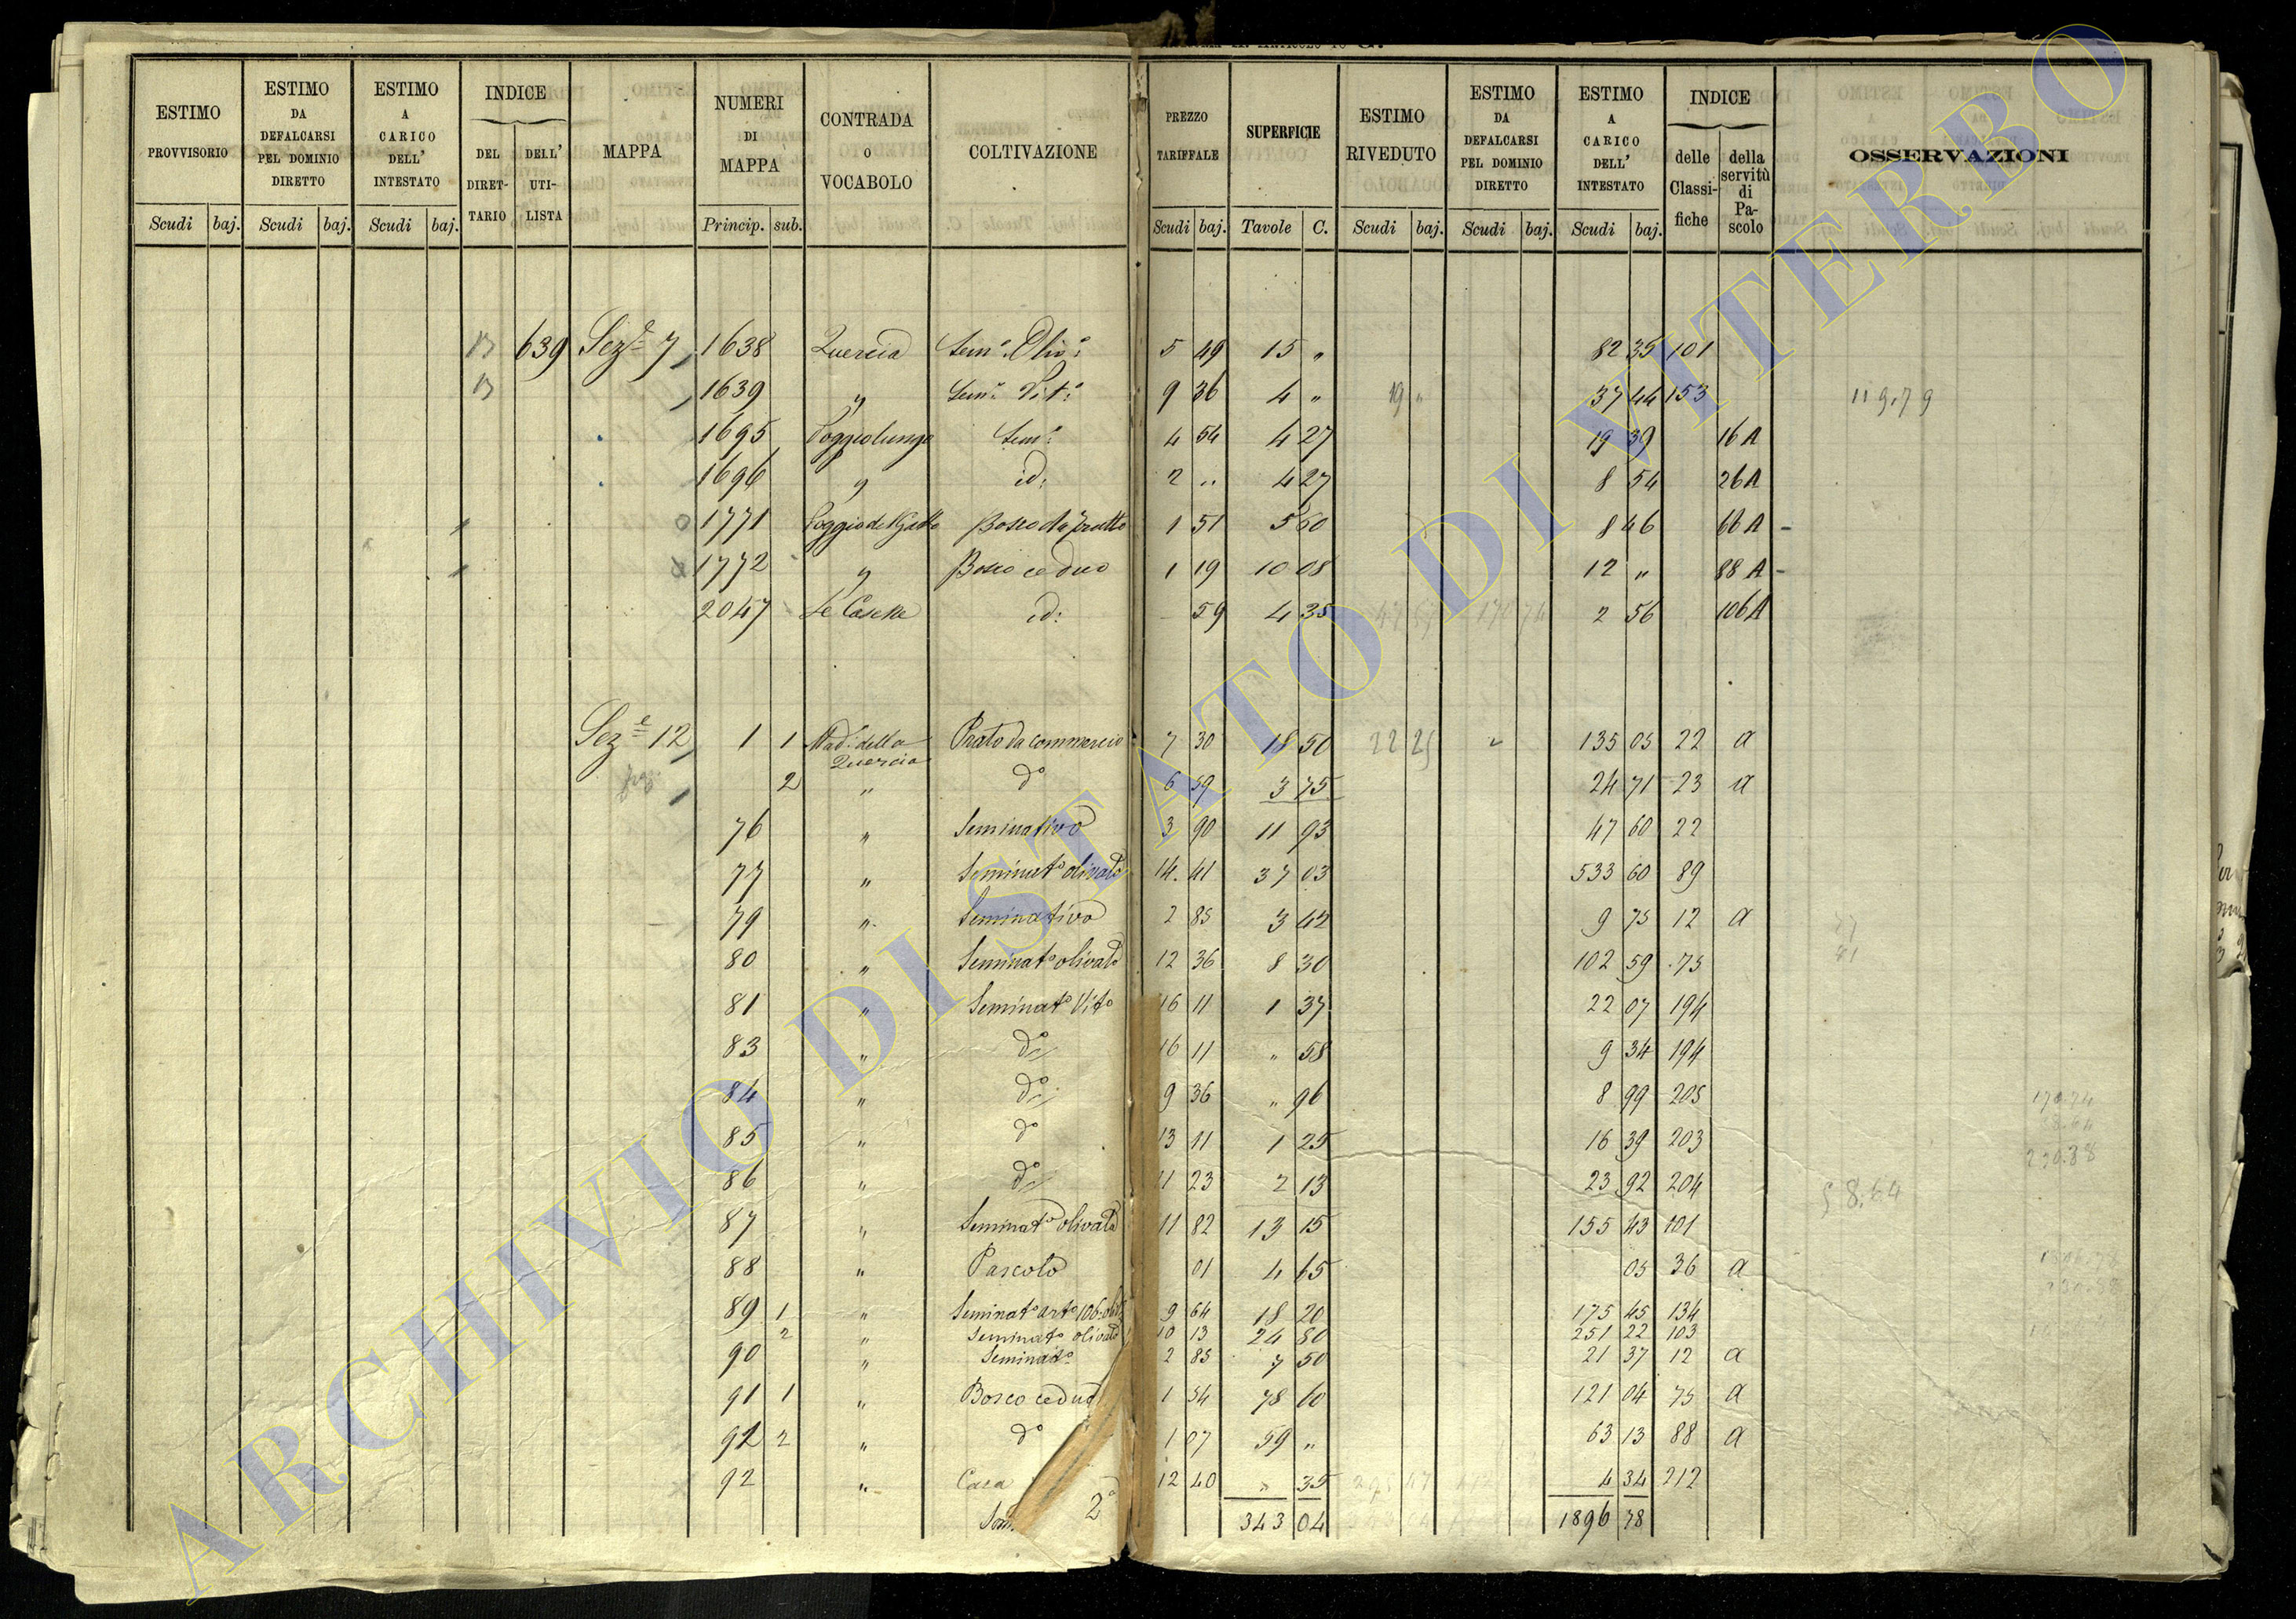 ESTIMO PROVVISORIO | ESTIMO DA DEFALCARSI PEL DOMINIO DIRETTO | ESTIMO A CARICO DELL' INTESTATO | INDICE DEL DIRET-TARIO | DELL' UTI-LISTA | MAPPA | NUMERI DI MAPPA | CONTRADA O VOCABOLO | COLTIVAZIONE | PREZZO TARIFFALE | SUPERFICIE | ESTIMO RIVEDUTO | ESTIMO DA DEFALCARSI PEL DOMINIO DIRETTO | ESTIMO A CARICO DELL' INTESTATO | INDICE delle Classi-fiche | della servitù di Pa-scolo | OSSERVAZIONI
Scudi baj. | Scudi baj. | Scudi baj. | Princip. sub. | Scudi baj. | Tavole C. | Scudi baj. | Scudi baj. | Scudi baj.
639 Sez.e 7 1638 Quercia Sem.o Oliv.o 5 49 15 " 82 35 101
1639 " Sem.o Vit.o 9 36 4 " 19 " 37 44 153 119.79
1695 Poggiolungo Sem.o 4 54 4 27 19 39 16 A
1696 " id: 2 " 4 27 8 54 26 A
1771 Poggio del Gatto Bosco da frutto 1 51 5 60 8 46 66 A
1772 " Bosco ceduo 1 19 10 08 12 " 88 A
2047 Le Caselle id: 59 4 35 2 56 106 A
Sez.e 12 1 1 Mad.a della Quercia Prato da commercio 7 30 18 50 22 25 135 05 22 a
2 " d.o 6 59 3 75 24 71 23 a
76 " Seminativo 3 90 11 93 47 60 22
77 " Seminat.o olivato 14. 41 37 03 533 60 89
79 " Seminativo 2 85 3 42 9 75 12 a
80 " Seminat.o olivato 12 36 8 30 102 59 75
81 " Seminat.o Vit.o 16 11 1 37 22 07 194
83 " d.o 16 11 " 58 9 34 194
84 " d.o 9 36 " 96 8 99 205
85 " d.o 13 11 1 25 16 39 203
86 " d.o 11 23 2 13 23 92 204
87 " Seminat.o olivato 11 82 13 15 155 43 101
88 " Pascolo 01 4 65 05 36 a
89 1 " Seminat.o 9 64 18 20 175 45 134
2 " Seminat.o olivato 10 13 24 80 251 22 103
90 " Seminat.o 2 85 7 50 21 37 12 a
91 1 " Bosco ceduo 1 54 78 60 121 04 75 a
92 2 " d.o 1 07 59 " 63 13 88 a
92 " Casa 12 40 " 35 4 34 212
2.o 343 04 1896 78
ARCHIVIO DI STATO DI VITERBO